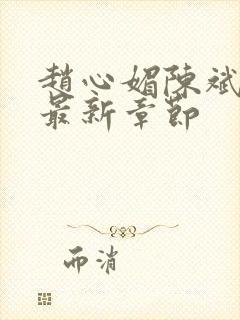 趙心媚陳斌
最新章節
而消